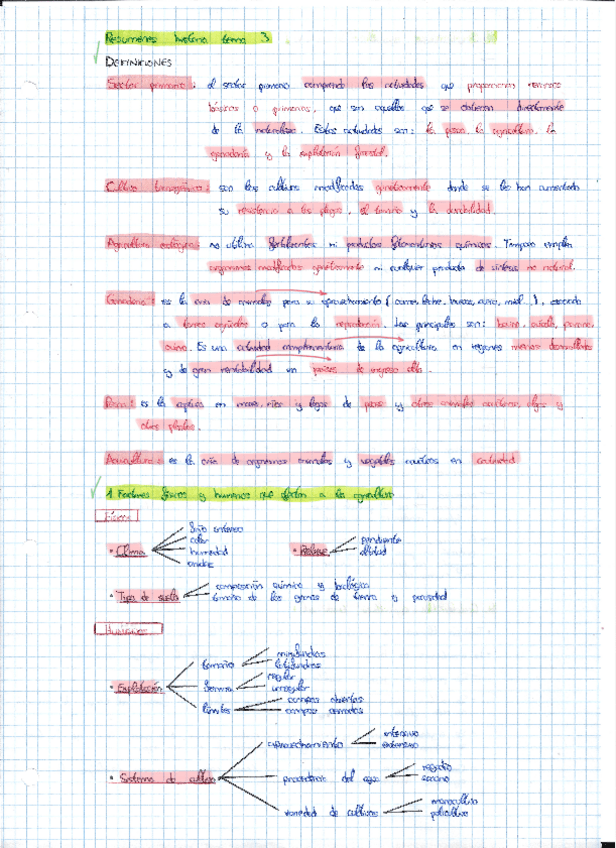 Resumenes historia tema 3
DEFINICIONES
Sector primario: el sector primario comprende las actividades que proporcionan recursos
básicos o primarios, que son aquellos que se obtienen directamente
de la naturaleza. Estas actividades son: la pesca, la agricultura, la
ganadería y la explotación forestal.
Cultivo transgénico: son los cultivos modificados genéticamente donde se les han aumentado
su resistencia a las plagas, el tamaño y la durabilidad.
Agricultura ecológica: no utiliza fertilizantes ni productos fitosanitarios químicos. Tampoco emplea
organismos modificados genéticamente ni cualquier producto de síntesis no natural.
Ganadería: es la cría de animales para su aprovechamiento (carne, leche, huevos, cuero, miel...),
a o para la reproducción. Las principales son: bovino, avícola, porcino,
ovino. Es una actividad complementaria de la agricultura en regiones menos desarrolladas
y de gran rentabilidad en países de ingreso alto.
Pesca: es la captura en mares, ríos y lagos de peces y otros animales acuáticos, algas y
otras plantas.
Acuicultura: es la cría de organismos animales y vegetales acuáticos en cautividad
1 Factores físicos y humanos que afectan a la agricultura
Físicos
calor
• Clima humedad • Relieve pendiente
altitud
aridez
• Tipos de suelo composición química y biológica
tamaño de los granos de tierra y porosidad
Humanos
tamaño minifundios
latifundios
• Explotación forma regular
irregular
límites campos abiertos
campos cerrados
aprovechamiento intensivo
extensivo
• Sistema de cultivo procedencia del agua regadío
secano
variedad de cultivos monocultivo
policultivo